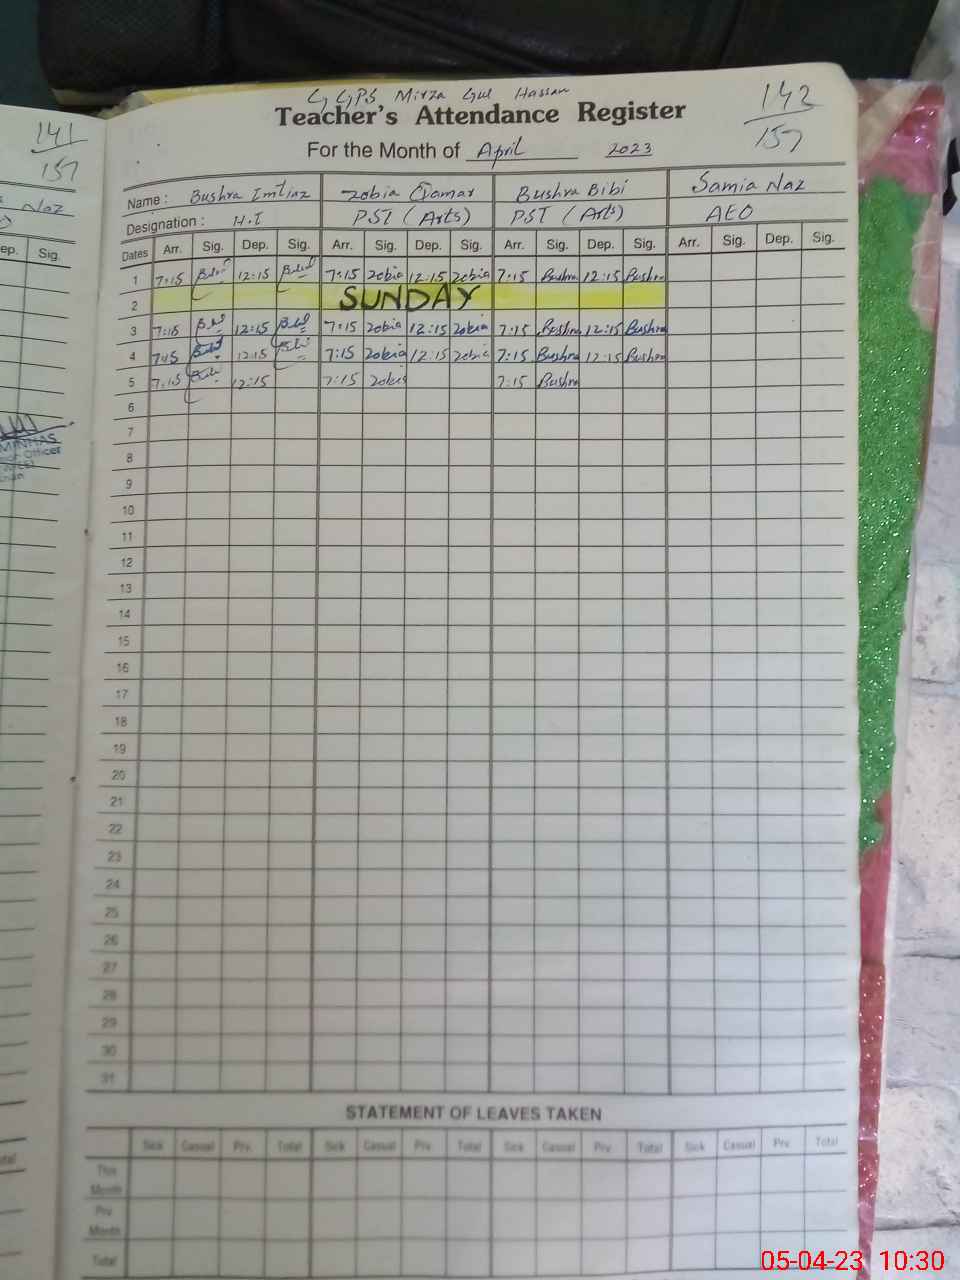 141
157
Naz
ep. Sig.
MINHAS
Officer
G GPS Mirza Gul Hassan
142
157
Teacher's Attendance Register
For the Month of April 2023
Name : Bushra Imtiaz Zobia Qamar Bushra Bibi Samia Naz
Designation : H.T PST (Arts) PST (Arts) AEO
Dates Arr. Sig. Dep. Sig. Arr. Sig. Dep. Sig. Arr. Sig. Dep. Sig. Arr. Sig. Dep. Sig.
1 7:15 12:15 7:15 Zobia 12:15 Zobia 7:15 Bushra 12:15 Bushra
2 SUNDAY
3 7:15 12:15 7:15 Zobia 12:15 Zobia 7:15 Bushra 12:15 Bushra
4 7:15 12:15 7:15 Zobia 12:15 Zobia 7:15 Bushra 12:15 Bushra
5 7:15 12:15 7:15 Zobia 7:15 Bushra
6
7
8
9
10
11
12
13
14
15
16
17
18
19
20
21
22
23
24
25
26
27
28
29
30
31
STATEMENT OF LEAVES TAKEN
Sick Casual Prv. Total Sick Casual Prv. Total Sick Casual Prv. Total Sick Casual Prv. Total
This
Month
Prv.
Month
Total
05-04-23 10:30